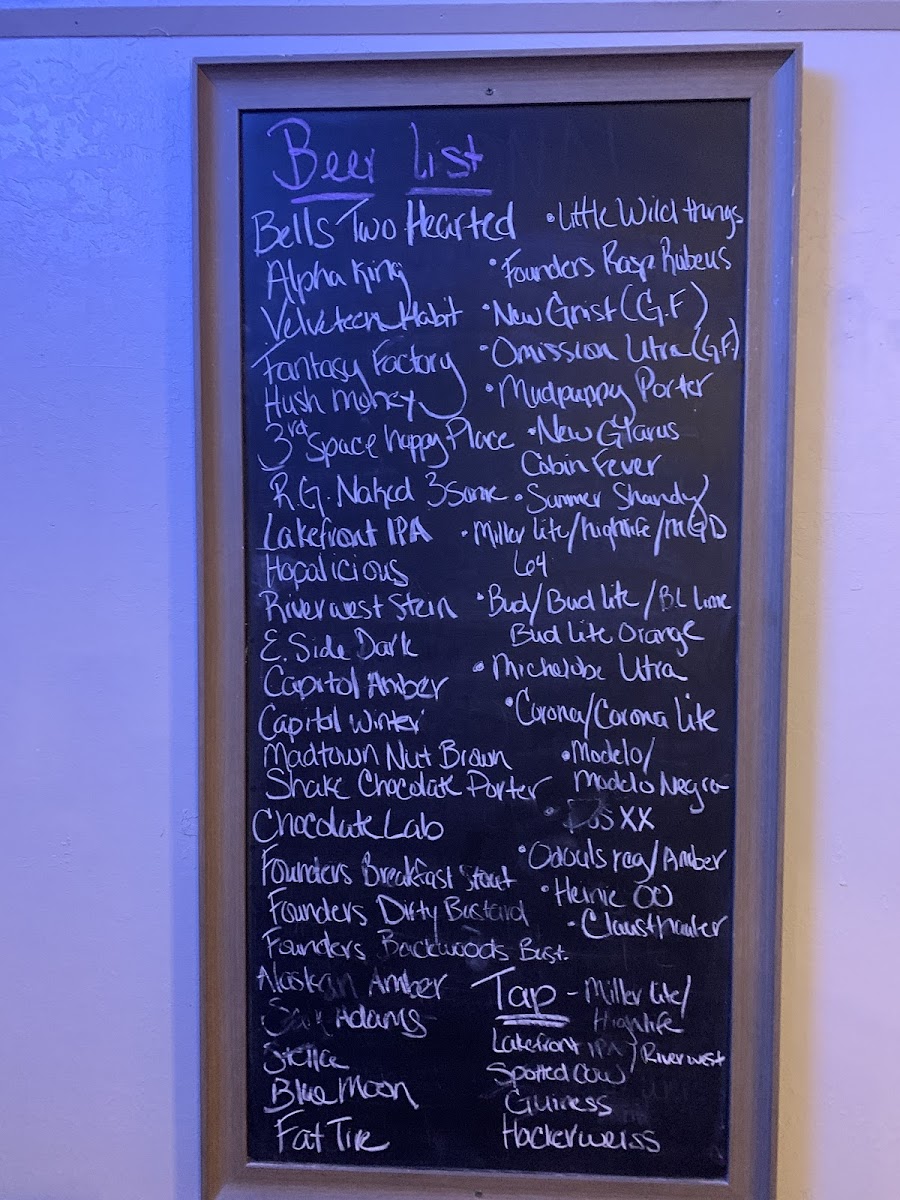 Beer List
Bells Two Hearted
Alpha King
Velveteen Habit
Fantasy Factory
Hush Money
3rd Space Happy Place
R.G. Naked 3some
Lakefront IPA
Hopalicious
Riverwest Stein
E. Side Dark
Capitol Amber
Capitol Winter
Madtown Nut Brown
Shake Chocolate Porter
Chocolate Lab
Founders Breakfast Stout
Founders Dirty Bustard
Founders Backwoods Bast.
Alaskan Amber
Sam Adams
Stella
Blue Moon
Fat Tire
• Little Wild things
• Founders Rasp Rubeus
• New Grist (G.F)
• Omission Utra (G.F.)
• Mudpuppy Porter
• New Glarus
Cabin Fever
• Summer Shandy
• Miller Lite/highlife/MGD
64
• Bud/Bud Lite/B.L Lime
Bud Lite Orange
• Michelobe Utra
• Corona/Corona Lite
• Modelo/
Modelo Negra
• Dos XX
• Odouls reg/Amber
• Heinie OO
• Clausthauler
Tap - Miller Lite/
Highlife
Lakefront IPA/Riverwest
Spotted Cow
Guiness
Hackerweiss